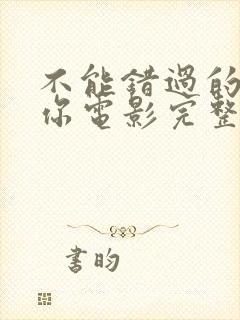 不能错過的
你電影完整
書昀